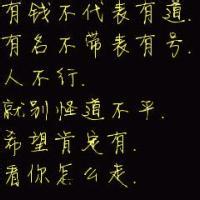 有钱不代表有道.
有名不带表有号.
人不行.
就别怪道不平.
希望肯定有.
看你怎么走.